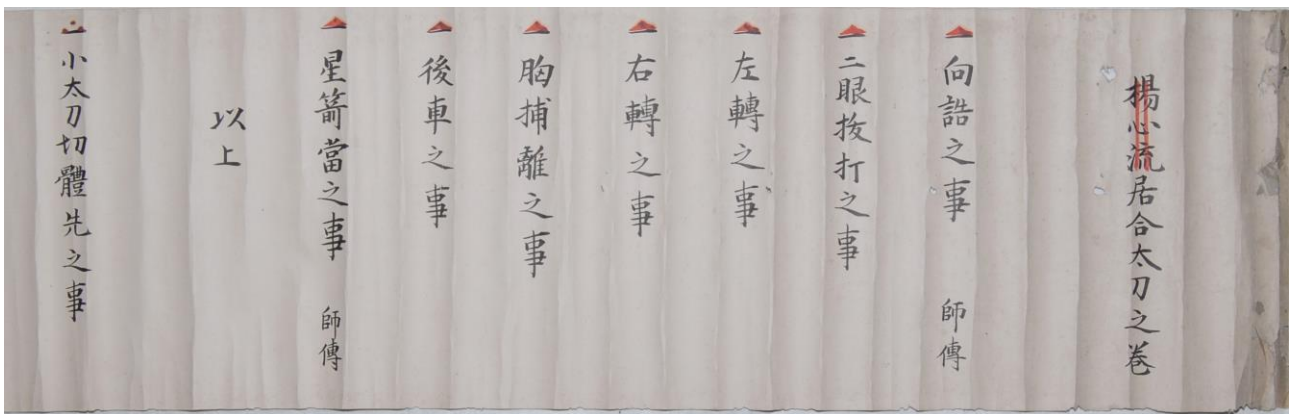 揚心流居合太刀之巻
一向詰之事 師傳
一二眼抜打之事
一左轉之事
一右轉之事
一胸捕離之事
一後車之事
一星箭當之事 師傳
以上
一小太刀切體先之事